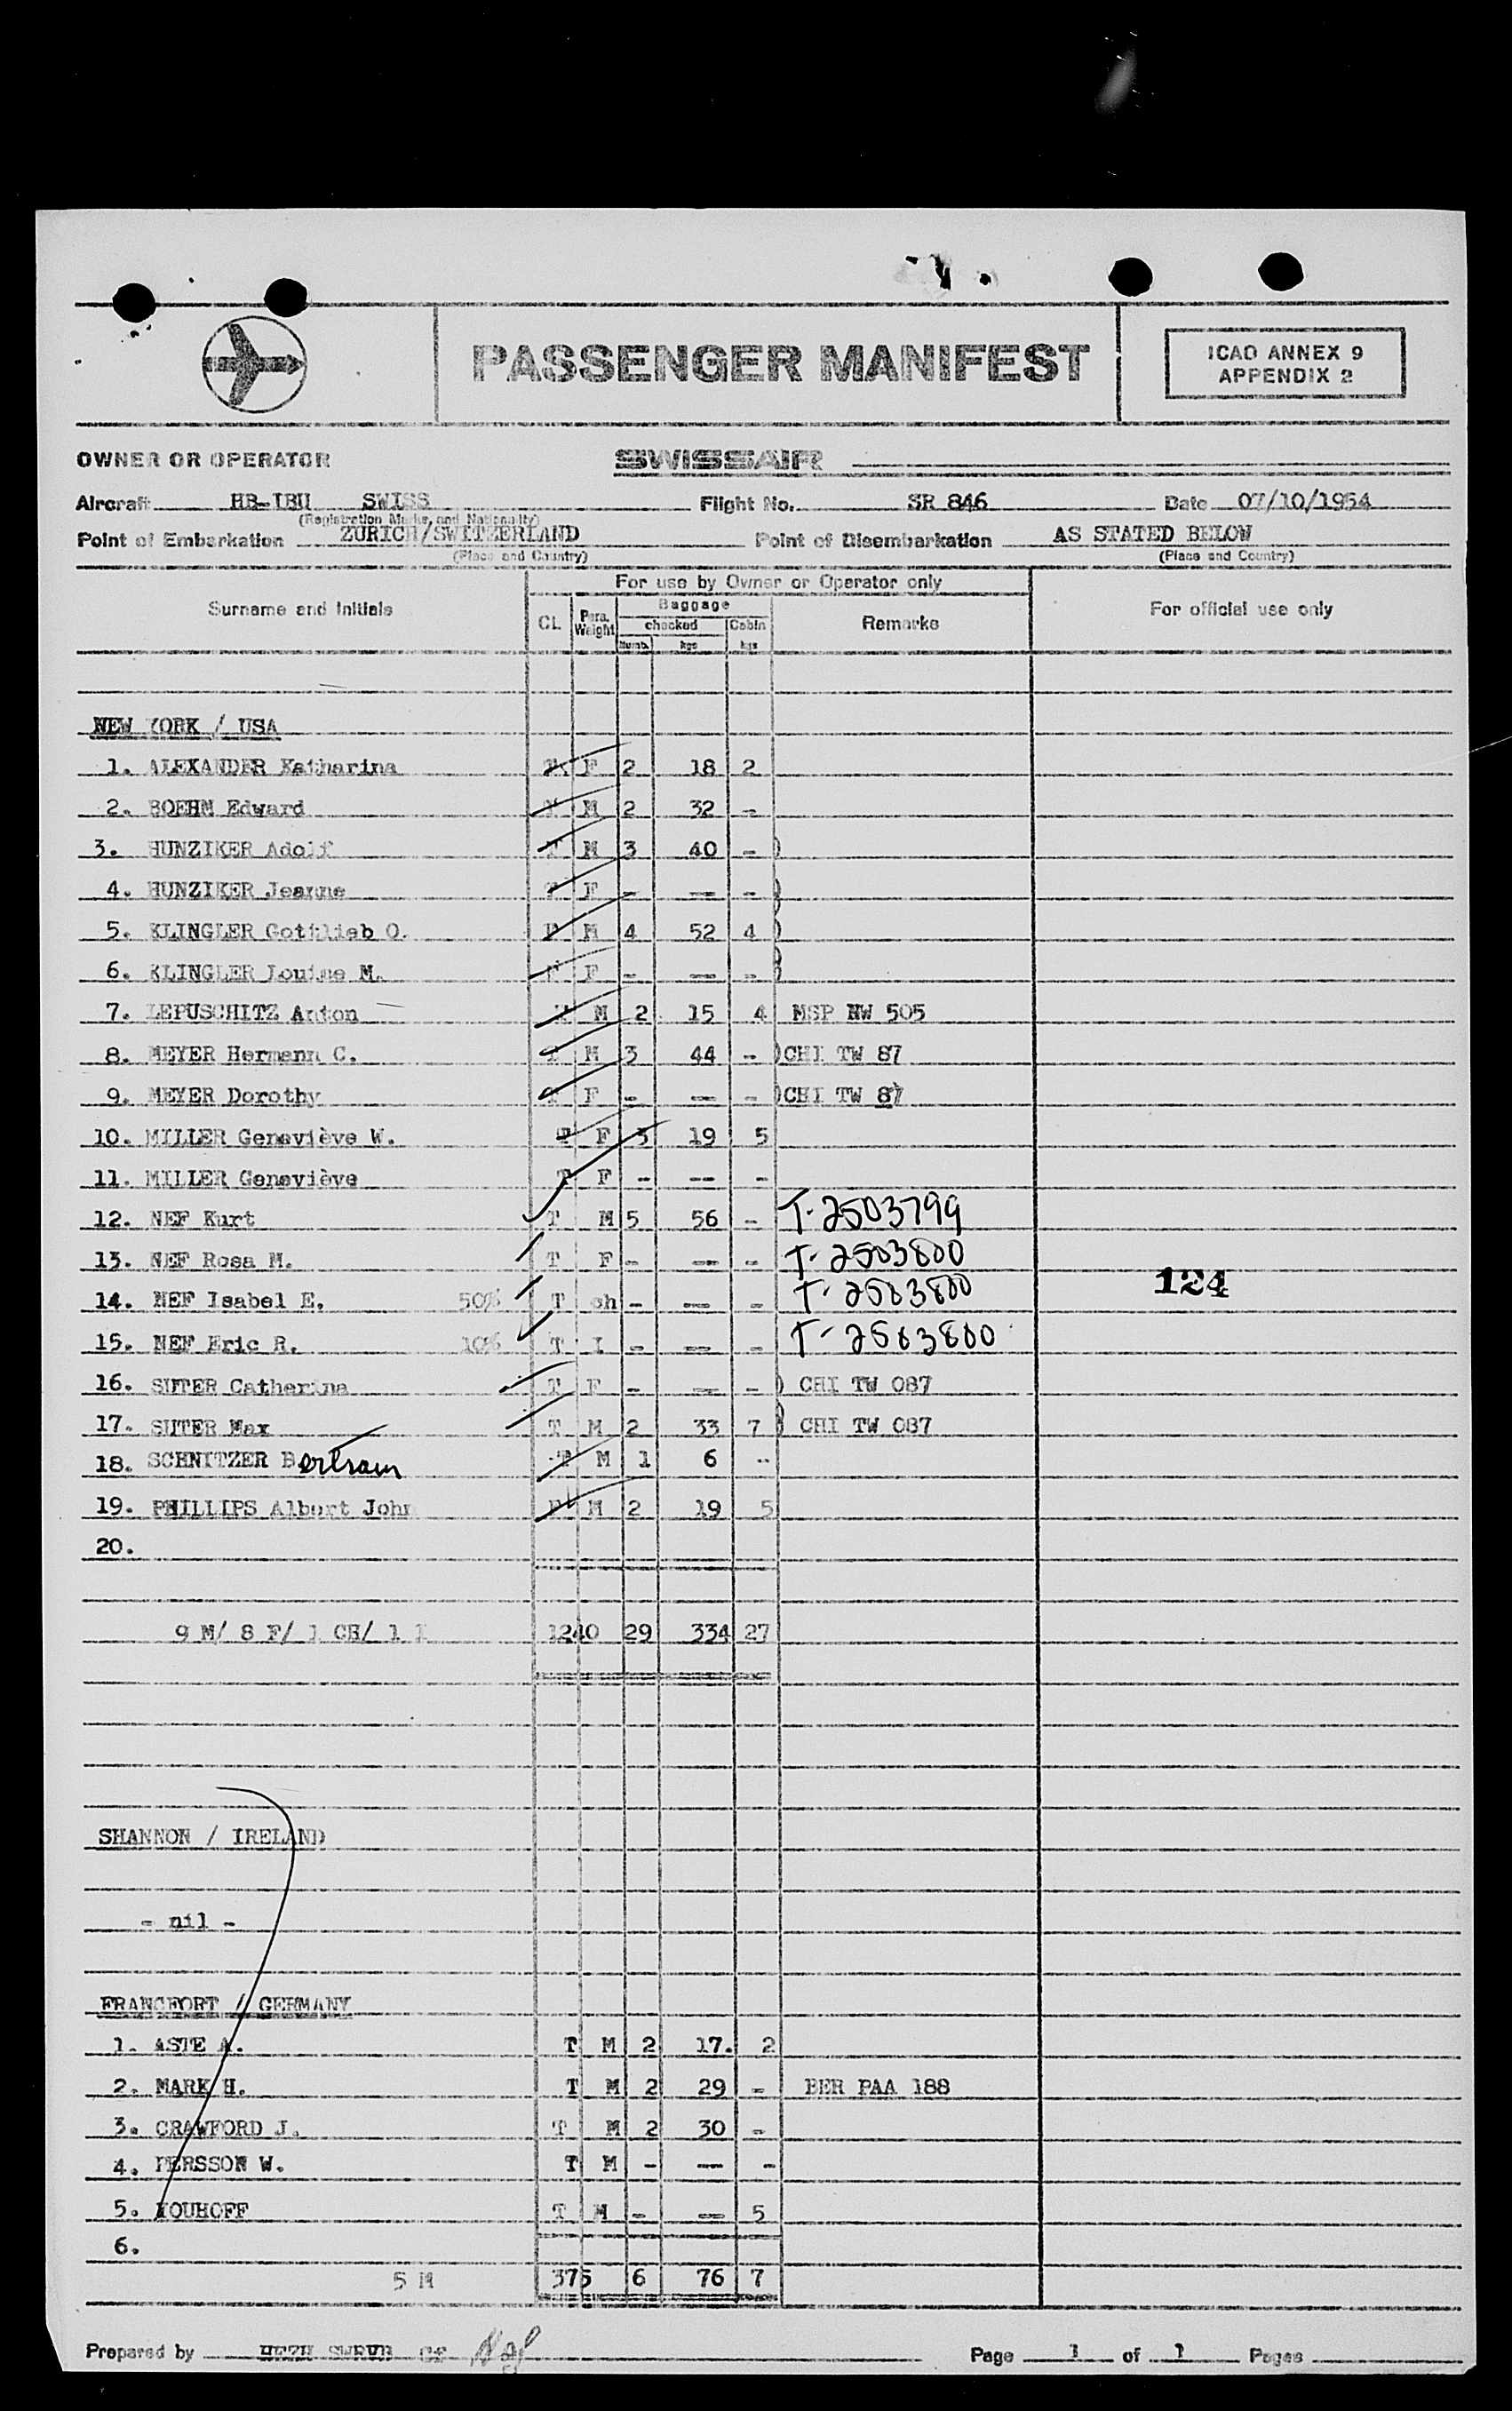 PASSENGER MANIFEST
ICAO ANNEX 9
APPENDIX 2
OWNER OR OPERATOR SWISSAIR
Aircraft HB-IBU SWISS Flight No. SR 846 Date 07/10/1954
(Registration Marks, and Nationality)
Point of Embarkation ZURICH/SWITZERLAND Point of Disembarkation AS STATED BELOW
(Place and Country) (Place and Country)
For use by Owner or Operator only
Surname and Initials CL Pers. Weight Baggage checked Cabin Remarks For official use only
Numb. kgs kgs
NEW YORK / USA
1. ALEXANDER Katharina T F 2 18 2
2. BOEHM Edward T M 2 32 -
3. HUNZIKER Adolf T M 3 40 - )
4. HUNZIKER Jeanne T F - -- - )
5. KLINGLER Gottlieb O. F M 4 52 4 )
6. KLINGLER Louise M. F F - -- - )
7. LEPUSCHITZ Anton T M 2 15 4 MSP NW 505
8. MEYER Hermann C. T M 3 44 - )CHI TW 87
9. MEYER Dorothy T F - -- - )CHI TW 87
10. MILLER Geneviève W. T F 3 19 5
11. MILLER Geneviève T F - -- -
12. NEF Kurt T M 5 56 - T-2503799
13. NEF Rosa M. T F - -- - T-2503800
14. NEF Isabel E. 50% T ch - -- - T-2503800
124
15. NEF Eric R. 10% T I - -- - T-2503800
16. SUTER Catherina T F - -- - ) CHI TW 087
17. SUTER Max T M 2 33 7 ) CHI TW 087
18. SCHNITZER Bertram T M 1 6 --
19. PHILLIPS Albert John F M 2 19 5
20.
9 M/ 8 F/ 1 CH/ 1 I 1240 29 334 27
SHANNON / IRELAND
- nil -
FRANCFORT / GERMANY
1. ASTE A. T M 2 17. 2
2. MARK H. T M 2 29 - BER PAA 188
3. CRAWFORD J. T M 2 30 -
4. PERSSON W. T M - -- -
5. KOUHOFF T M - -- 5
6.
5 M 375 6 76 7
Prepared by Page 1 of 1 Pages